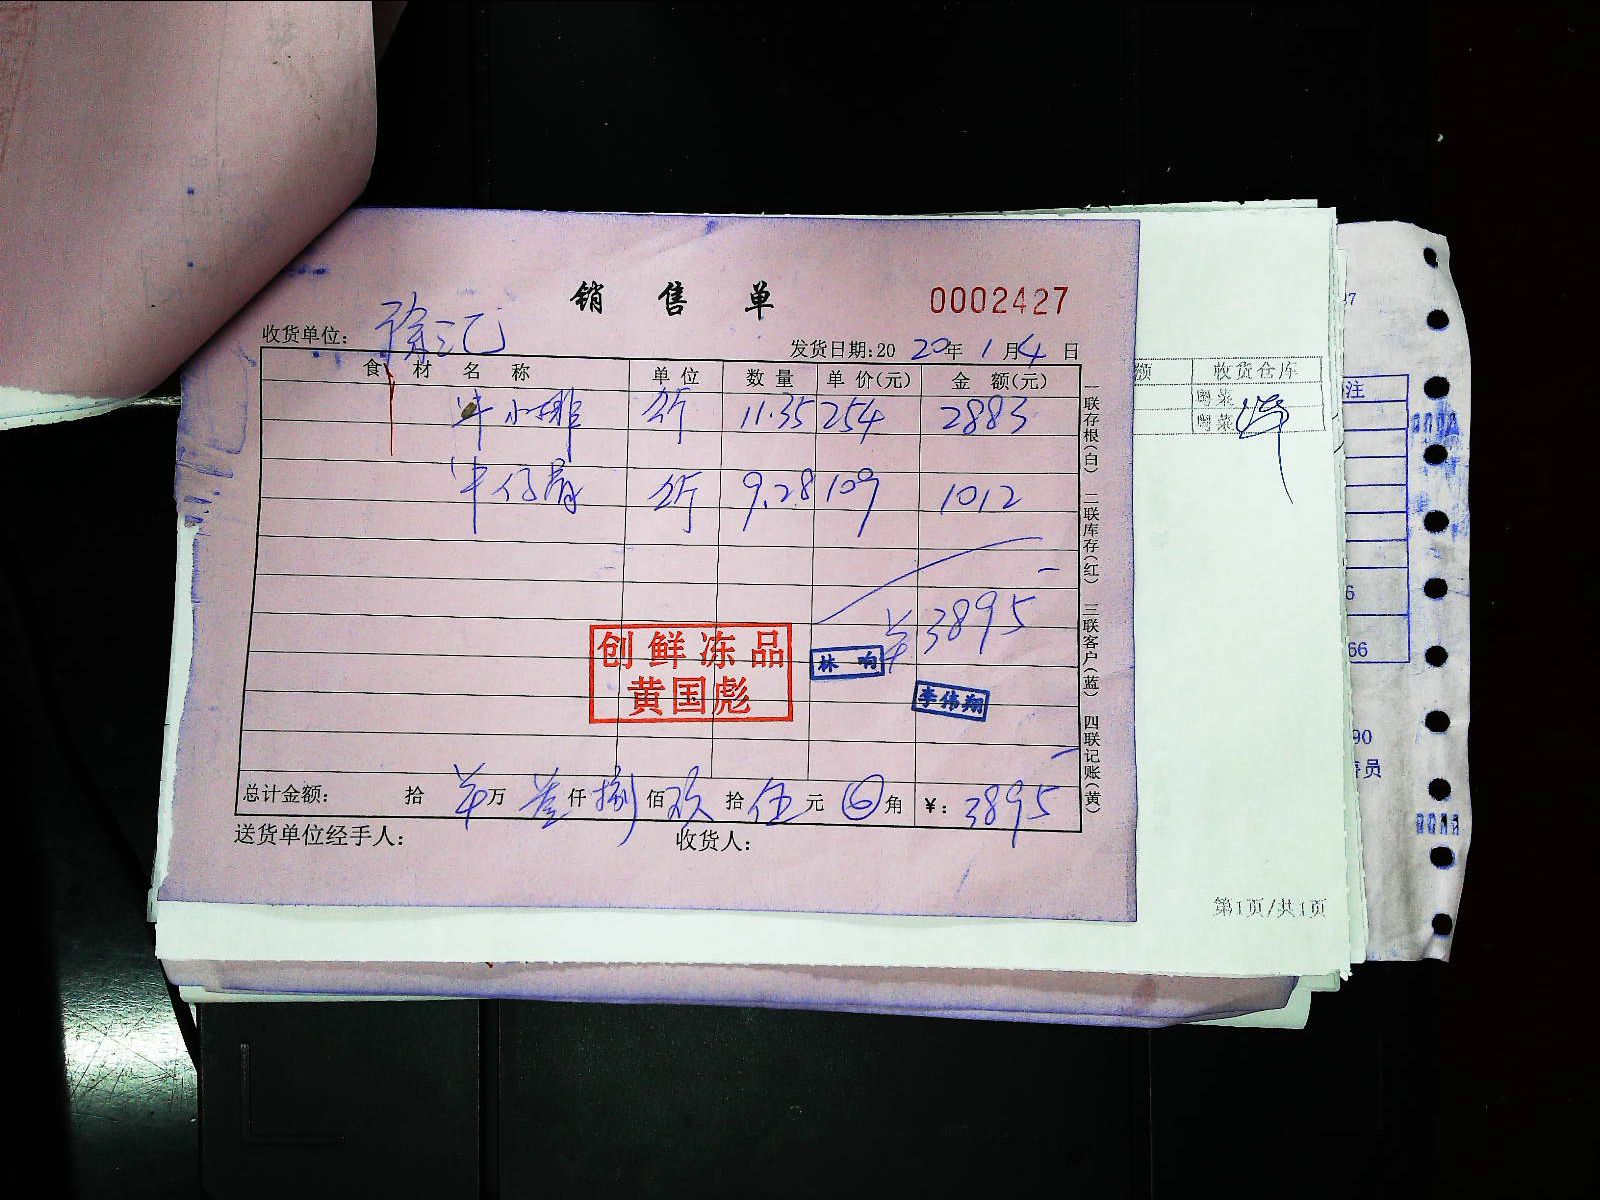 销售单 0002427
收货单位: 徐汇
发货日期:2020年1月4日
食材名称 单位 数量 单价(元) 金额(元)
牛小排 公斤 11.35 254 2883
牛仔骨 公斤 9.28 109 1012
¥3895
创鲜冻品
黄国彪
林响
李伟翔
总计金额: 拾 万 叁仟 捌佰 玖拾 伍元 角 ¥: 3895
送货单位经手人: 收货人:
一联存根(白) 二联库存(红) 三联客户(蓝) 四联记账(黄)
额 收货仓库
粤菜
粤菜
第1页/共1页
注
66
90
员